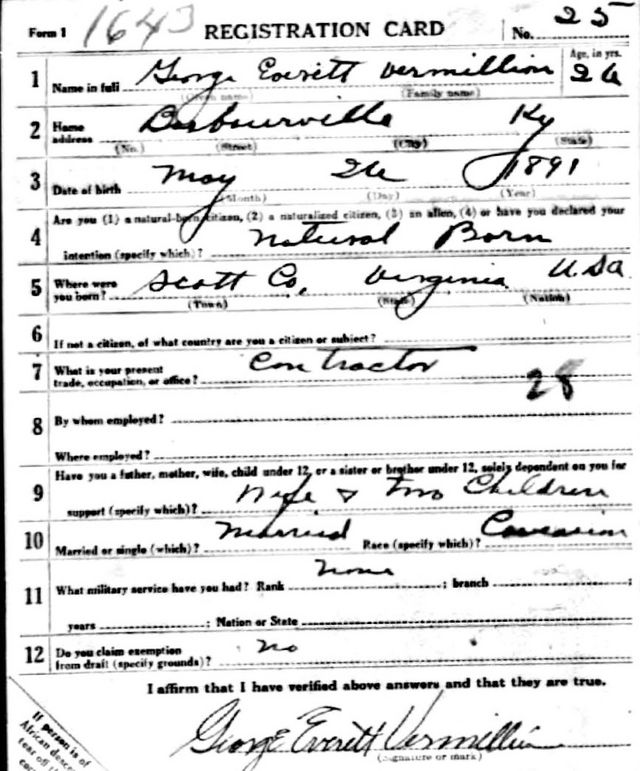 Form 1 1643 REGISTRATION CARD No. 25
Age, in yrs.
1 Name in full George Everett Vermillion 26
(Given name) (Family name)
2 Home address Barbourville Ky
(No.) (Street) (City) (State)
3 Date of birth May 26 1891
(Month) (Day) (Year)
Are you (1) a natural-born citizen, (2) a naturalized citizen, (3) an alien, (4) or have you declared your
4 intention (specify which)? Natural Born
5 Where were you born? Scott Co. Virginia U.S.A
(Town) (State) (Nation)
6 If not a citizen, of what country are you a citizen or subject?
7 What is your present trade, occupation, or office? Contractor
28
8 By whom employed?
Where employed?
Have you a father, mother, wife, child under 12, or a sister or brother under 12, solely dependent on you for
9 support (specify which)? Wife & Two Children
10 Married or single (which)? Married Race (specify which)? Caucasion
11 What military service have you had? Rank None ; branch ;
years ; Nation or State
12 Do you claim exemption from draft (specify grounds)? No
I affirm that I have verified above answers and that they are true.
George Everett Vermillion
(Signature or mark)
If person is of
African
tear off